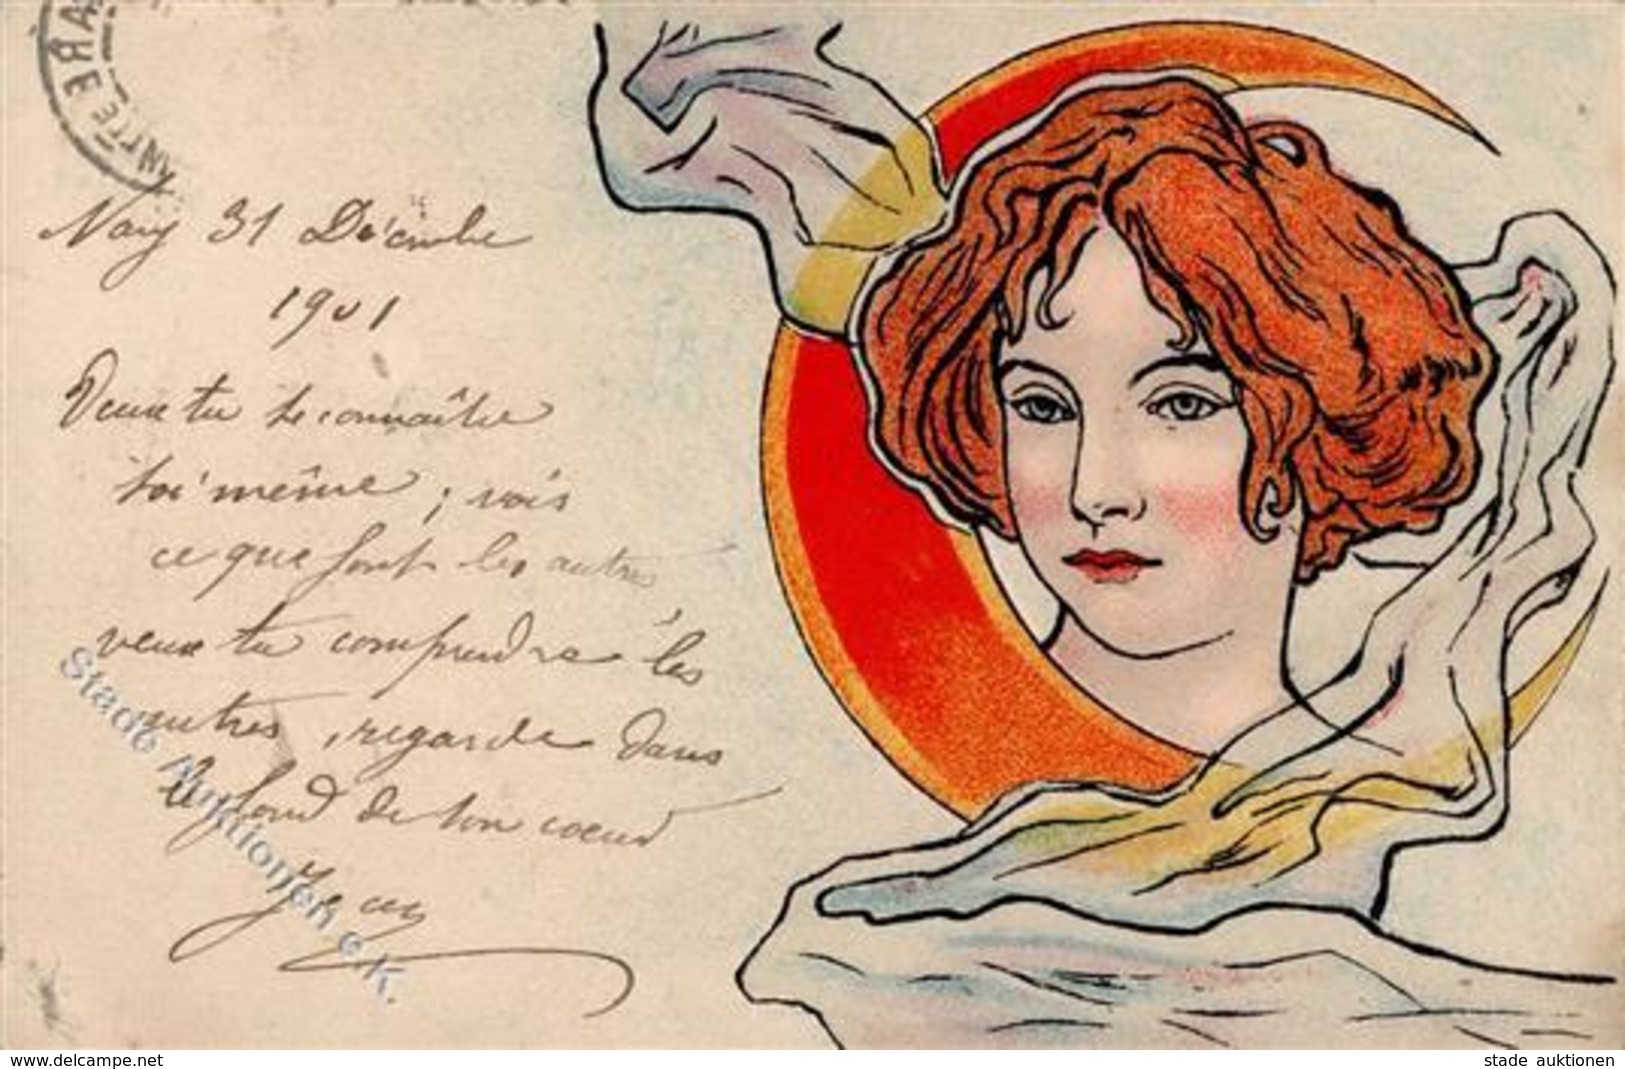 31 Décembre
1901
Veux tu te connaître
toi même ; vois
ce que font les autres
veux tu comprendre les
autres, regarde dans
le fond de ton coeur
Jean
Stade Auktionen e.K.
www.delcampe.net
stade auktionen